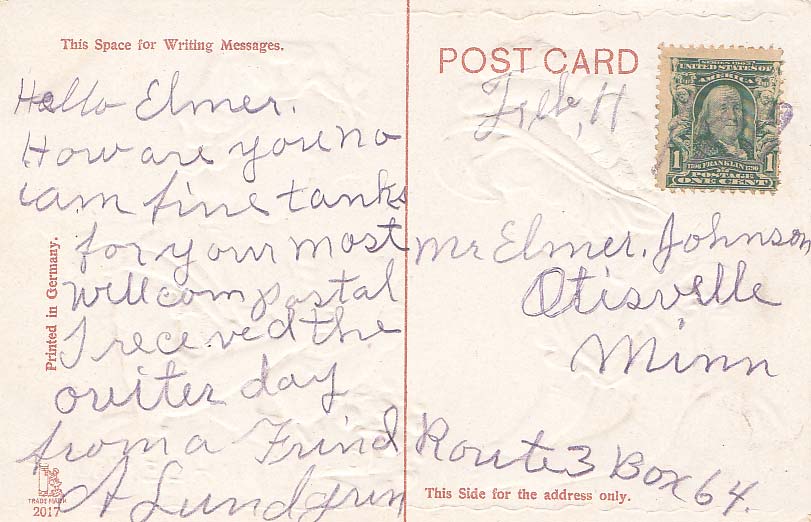 This Space for Writing Messages.
Hello Elmer.
How are you no
i am fine tanks
for your most
willcom postal
I receved the
ouiter day
from a Frind
A Lundgren
Printed in Germany.
TRADE MARK
2017
POST CARD
SERIES 1902
UNITED STATES OF
AMERICA
1706 FRANKLIN 1790
1 1
POSTAGE
ONE CENT
Mr Elmer. Johnson
Otisville
Minn
Route 3 Box 64.
This Side for the address only.